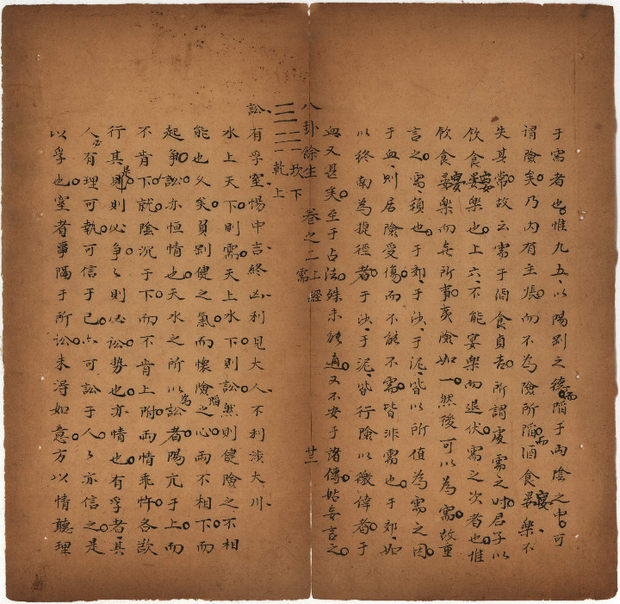 于需者也惟九五以陽剛之德陷于兩陰之中可
謂險矣乃内有主張而不為險所陷酒食宴樂不
失其常故云需于酒食貞吉所謂處需之時君子以
飲食宴樂也上六不能宴樂而退伏需之次者也惟
飲食宴樂而無所事夷險如一然後可以為需故重
言之需須也于郊于沙于泥皆以所值為需之因
于血則居險受傷而不能不需皆非需也于郊如
以終南為捷徑者于沙于泥皆行險以徼倖者于
血又甚矣至于占法殊未能通又不安于諸傳姑妄言之
八卦餘生 卷之二 上經 需 廿二
坎下乾上
訟有孚窒惕中吉終凶利見大人不利涉大川
水上天下則需天上水下則訟然則健險之不相
能也久矣負剛健之氣而懷險之心兩不相下而
起爭訟亦恒情也天水之所以為訟者陽亢于上而
不肯下就險沉于下而不肯上附兩情乖忤各欲
行其是則必爭爭則必訟勢也亦情也有孚者其
人必有理可執可信于己亦可訟于人人亦信之是
以孚也窒者事隔于所訟未得如意方以情聽理